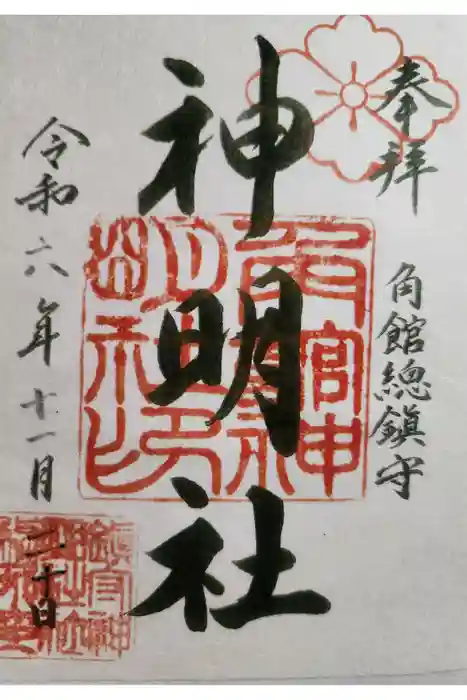 奉拝
角館總鎮守
神明社
令和六年十一月
二十日